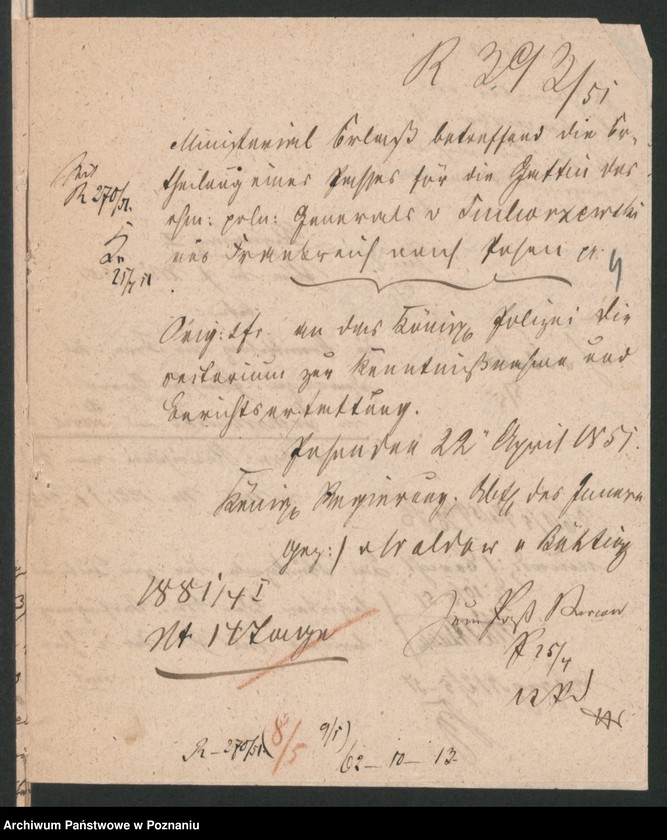 R 39/3/51
Ministerial Erlaß betreffend die Er-
theilung eines Passes für die Gattin des
ehm: poln: Generals v
aus Frankreich nach Posen
R 270/51.
25/4 51
Orig: tfr. an das Königl Polizei Di
rectorium zur Kenntnißnahme und
Berichtserstattung.
Posen den 22 April 1851.
Königl Regierung. Abth des Innern
gez:)
1881/4 I
Nt. 14 Tage
25/4
R-270/51.
8/5
9/5)
62-10-13.
Archiwum Państwowe w Poznaniu